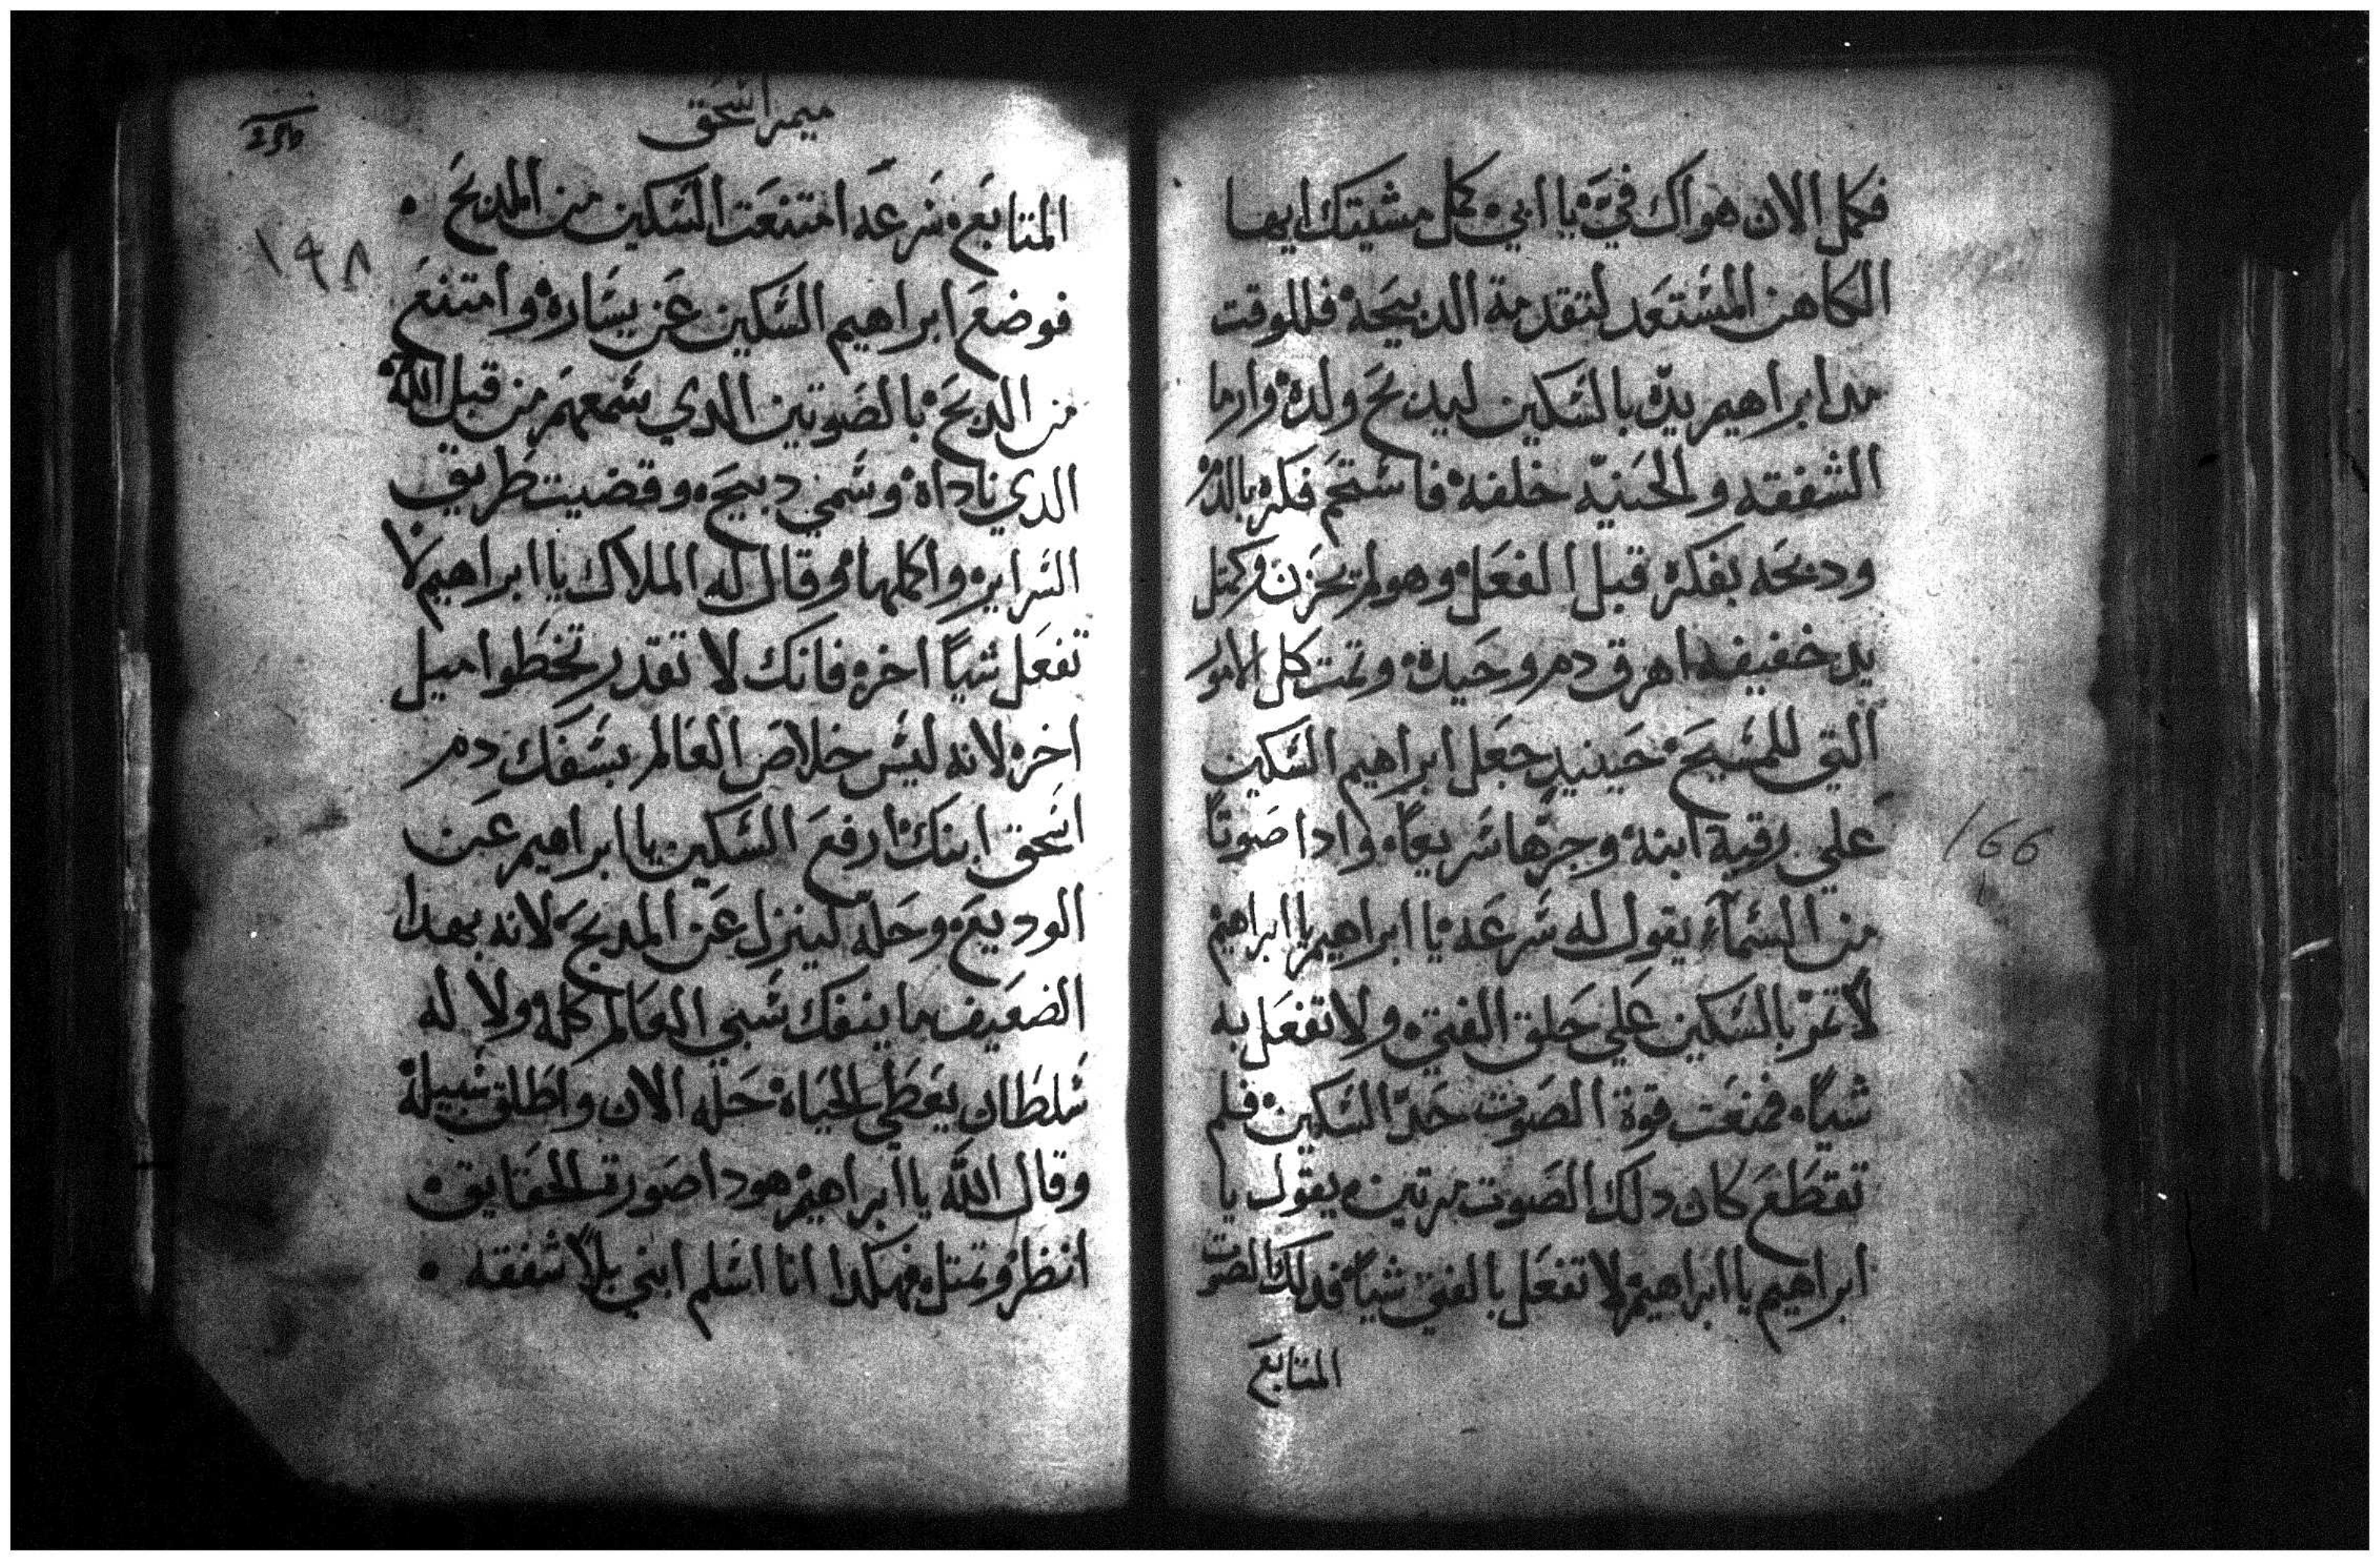 فكمل الان هواك فيَّ يا ابي كمل مشيتك ايها
الكاهن المستعد لتقدمة الدبيحة فللوقت
مد ابراهيم يدّه بالسكين ليدبح ولده وارما
الشفقه والحنيّه خلفه فاستحم فكره بالدم
ودبحه بفكره قبل الفعل وهو لم يحزن وكمثل
يد خفيفه اهرق دم وحيده وتمت كل الامور
التي للمسيح حينيد جعل ابراهيم السكين
علي رقبة ابنه وجرّها سريعاً واداصوتاً
من السمآء يقول له سرعه يا ابراهيم يا ابراهيم
لا تمرّ بالسكين علي حلق الفتي ولا تفعل به
شياً فمنعت قوة الصوت حدّ السكين فلم
تقطع كان دلك الصوت مرتين يقول يا
ابراهيم يا ابراهيم لا تفعل بالفتي شياً فدلك الصوت
المتابع
166
ميمر اسحق
١٩٨
المتابع سرعه امتنعت السكين من المدبح
فوضع ابراهيم السكين عن يساره وامتنع
من الدبح بالصوتين الدي سمعهم من قبل الله
الدي ناداه وسمي دبيحه وقضيت طريق
السراير واكملها وقال له الملاك يا ابراهيم لا
تفعل شياً اخر فانك لا تقدر تخطوا ميل
اخر لانه ليس خلاص العالم بسفك دم
اسحق ابنك ارفع السكين يا ابراهيم عن
الوديع وحله لينزل عن المدبح لانه بهدا
الضعيف ما ينفك سبي العالم كله ولا له
سلطان يعطي الحياه حله الان واطلق سبيله
وقال الله يا ابراهيم هودا صورت الحقايق
انظر وتمتل فهكدا انا اسلم ابني بلا شفقه